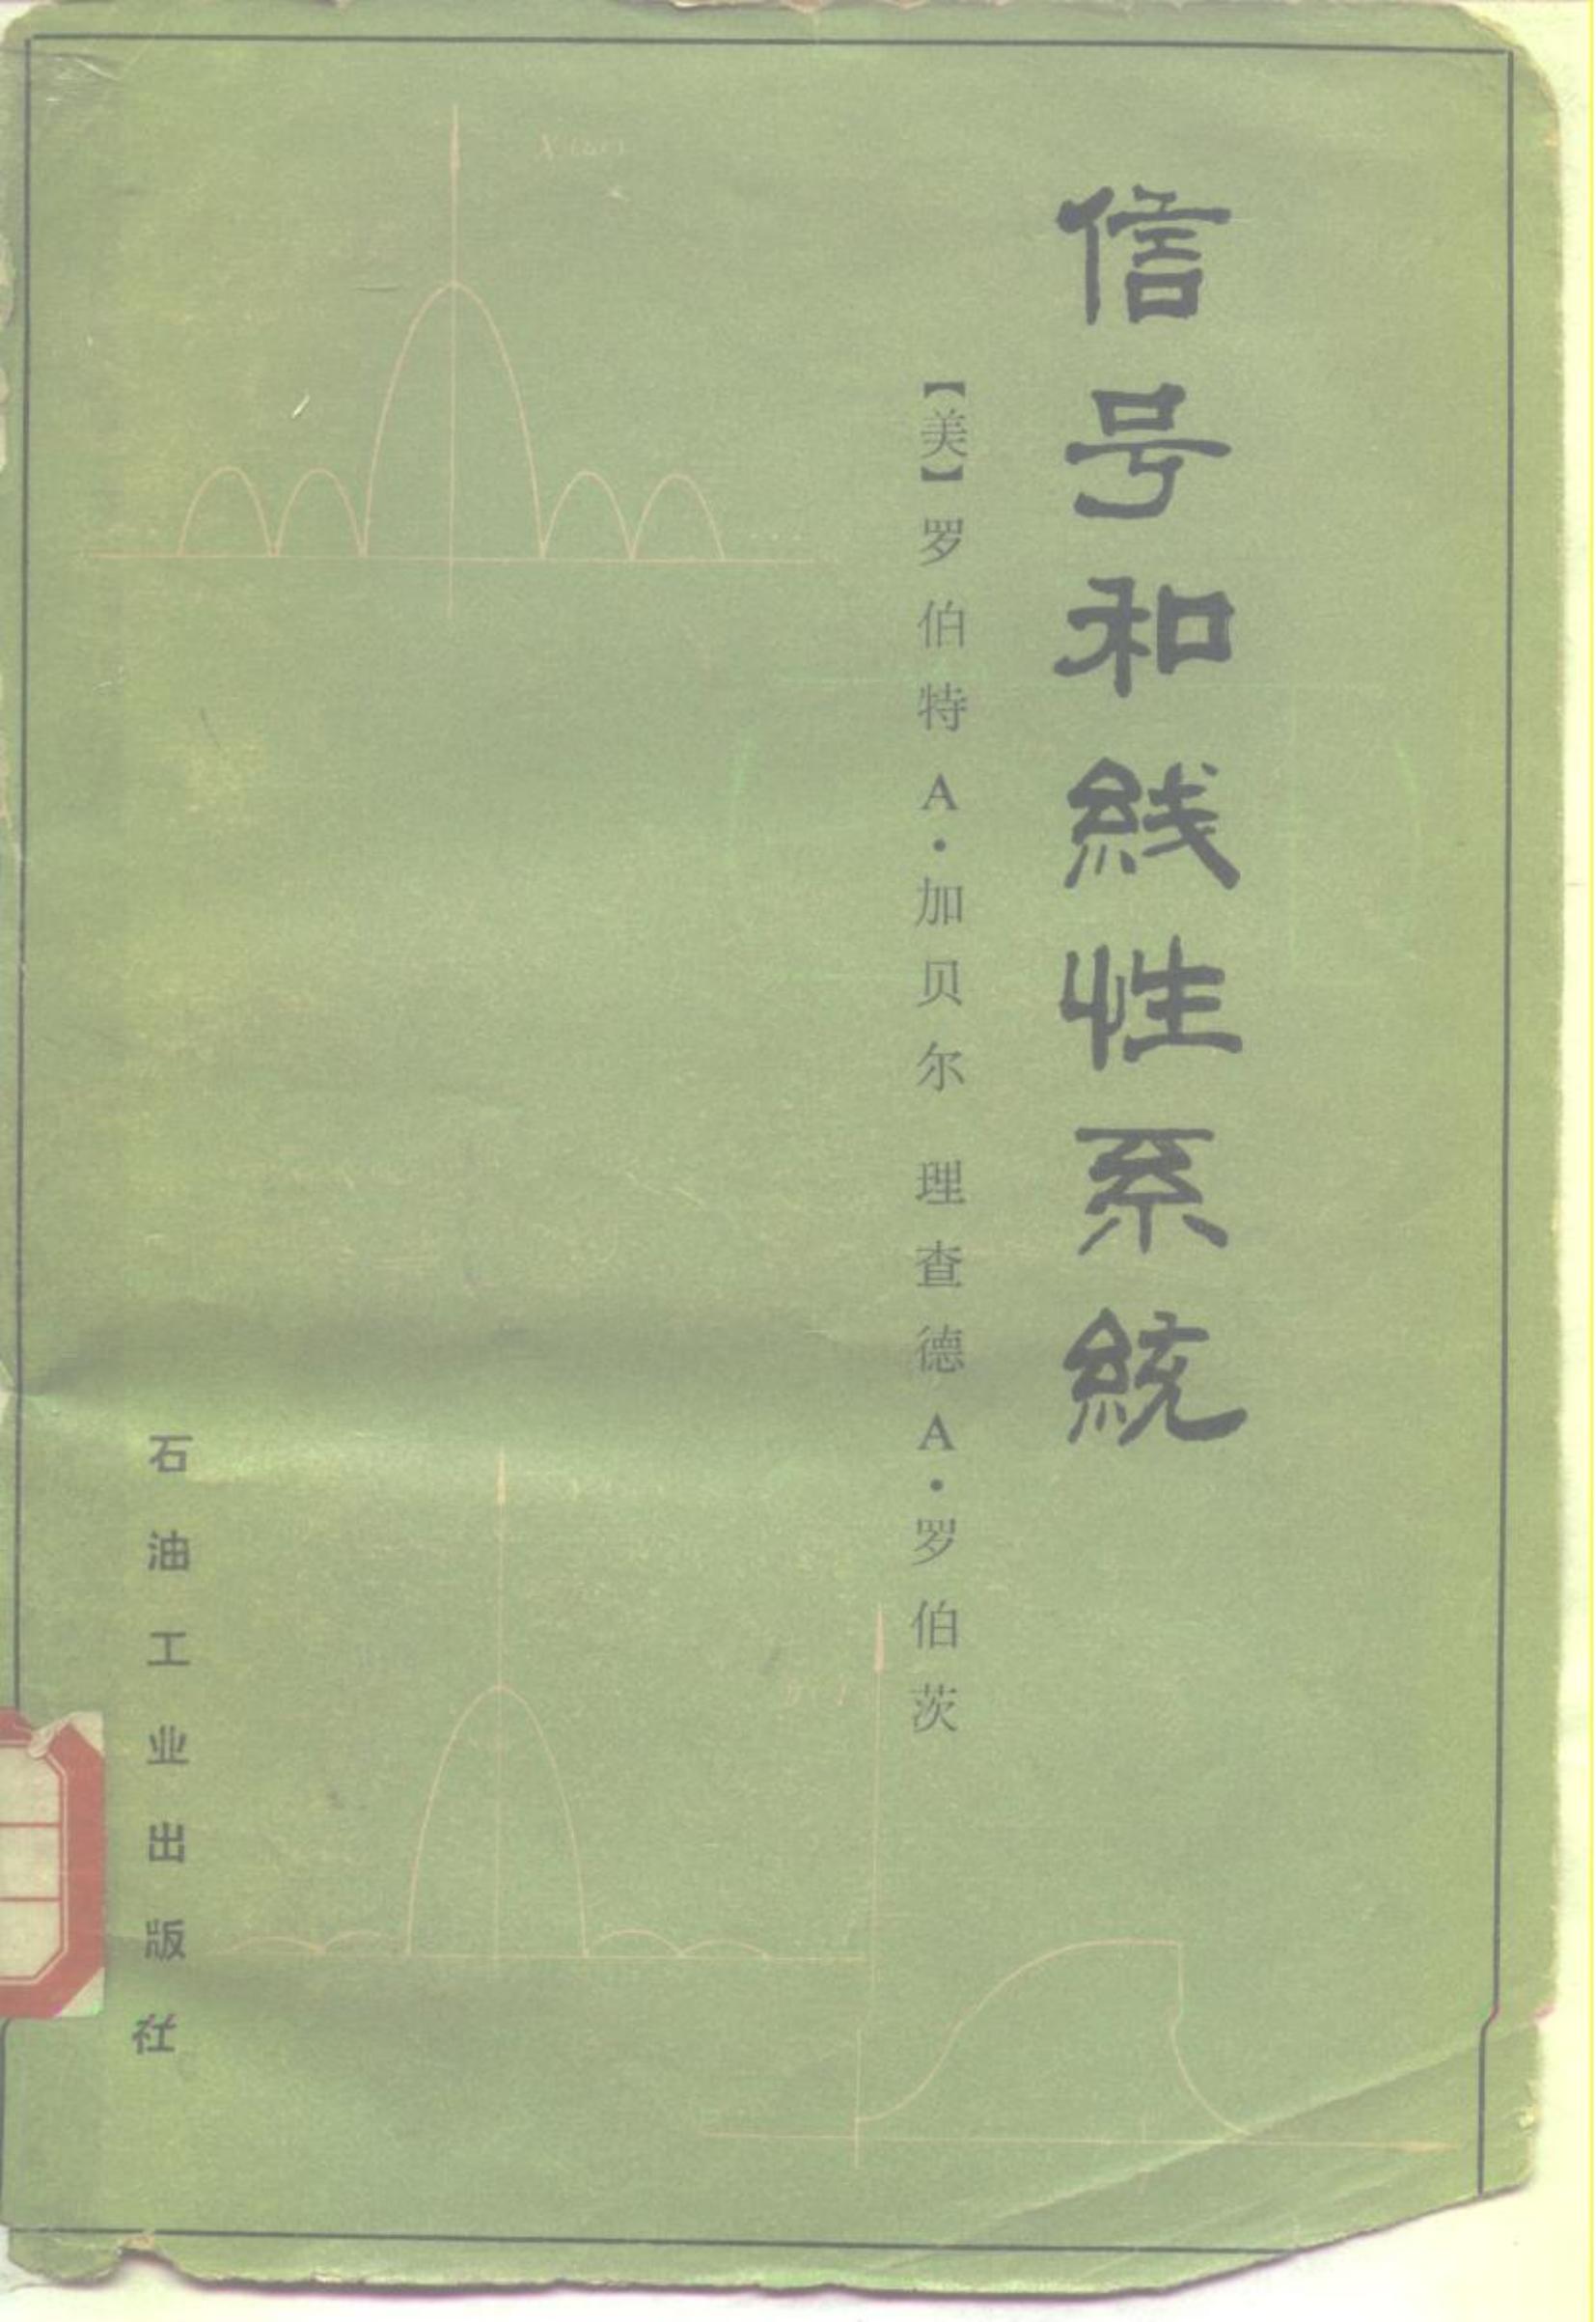 信号和线性系統
【美】罗伯特A·加贝尔 理查德A·罗伯茨
石油工业出版社